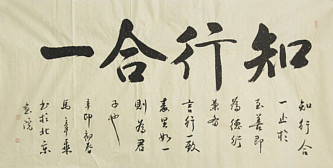 知行合一
知行合
一止於
至善即
為德行
兼备
言行一致
表里如一
則為君
子也
辛卯初春
馬辛華
书於北京